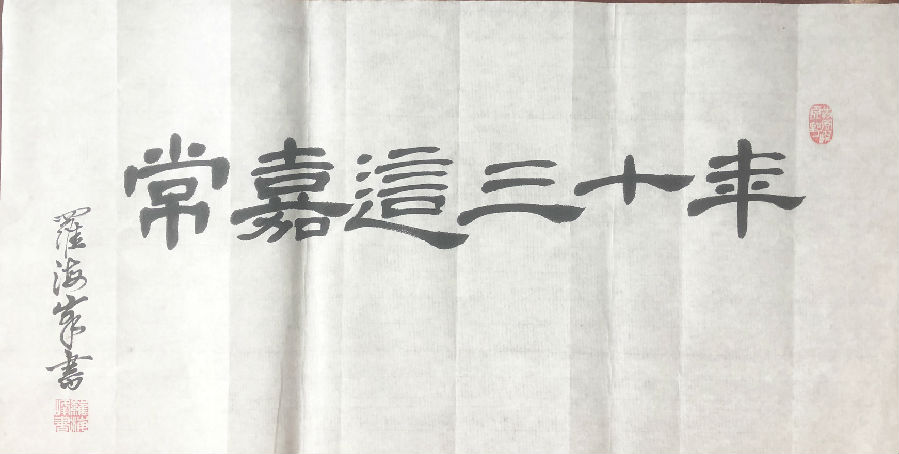 常嘉這三十年
羅海峯書